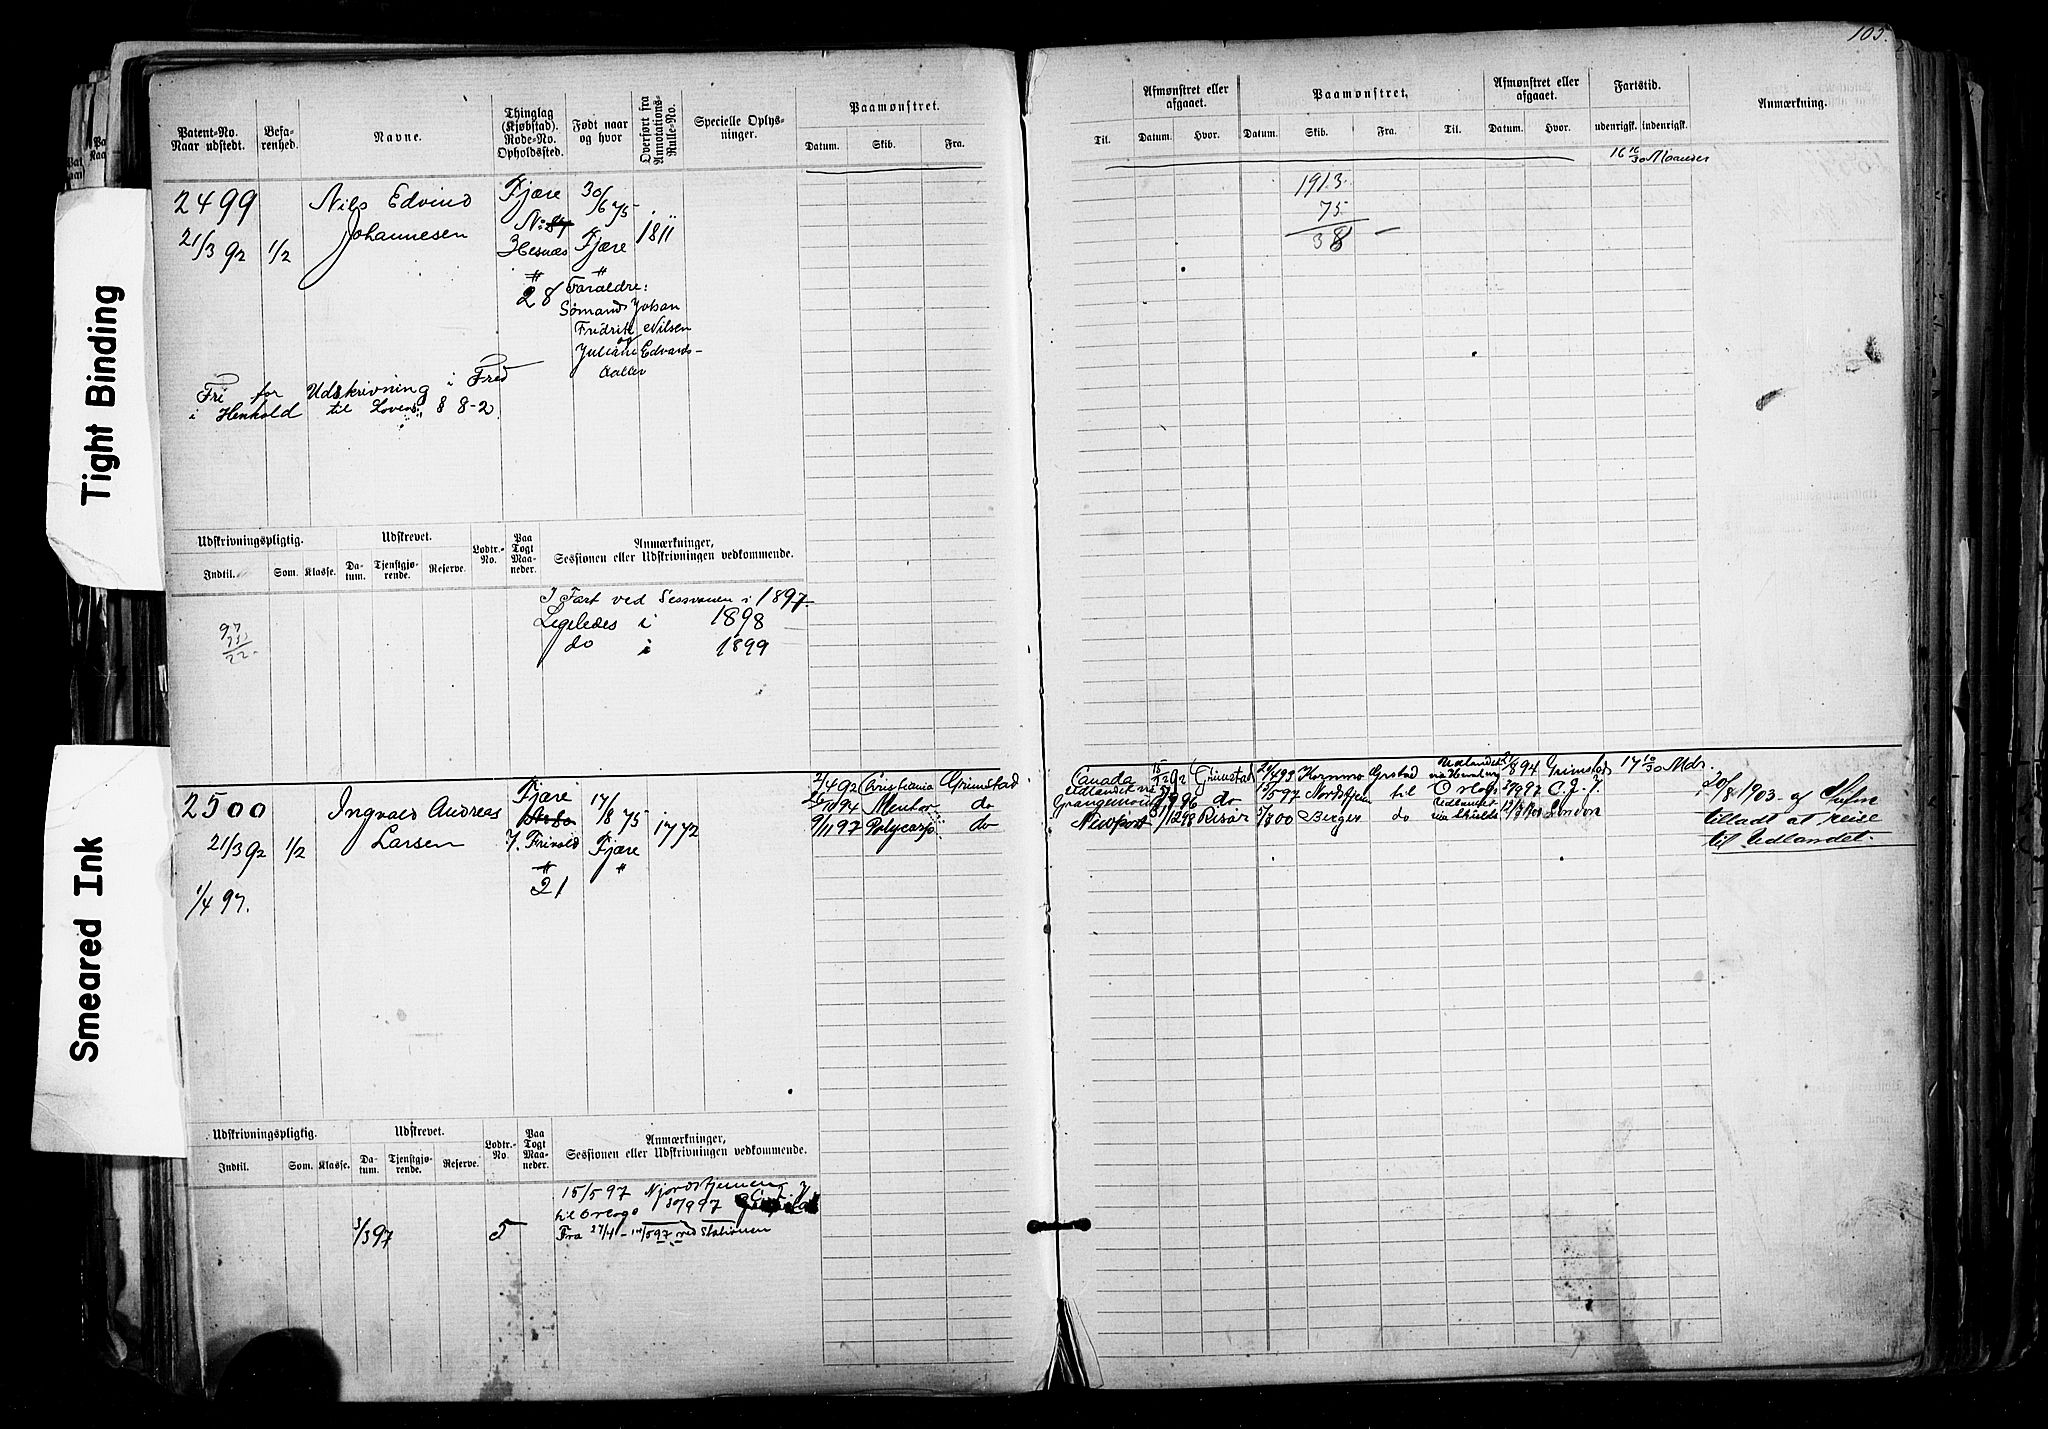 105.
Tight Binding
Smeared Ink
Patent-No.
Naar udstedt.
Befarenhed.
Navne.
Thinglag
(Kjøbstad).
Rode-No.
Opholdssted.
Født naar
og hvor
Overført fra
Annotations-
Rulle-No.
Specielle Oplysninger.
Paamønstret.
Datum. Skib. Fra.
Til.
Afmønstret eller
afgaaet.
Datum. Hvor.
Paamønstret.
Datum. Skib. Fra. Til.
Afmønstret eller
afgaaet.
Datum. Hvor.
Fartstid.
udenrigsk. indenrigsk.
Anmærkning.
16 16/30 Maaneder
2499
21/3 92
1/2
Nils Edvind
Johannesen
Fjære
Hesnæs
"
28
30/6 75
Fjære
"
Foraldre:
Sømand Johan
Fridrik Nilsen
og
Juliane Edvards-
datter
1811
1913.
75
38
Fri for Udskrivning i Fred
i Henhold til Lovens § 8-2.
Udskrivningspligtig.
Indtil. Som. Klasse.
Udskrevet.
Datum. Tjenstgjørende. Reserve.
Lodtr.-
No.
Paa
Togt
Maaneder.
Anmærkninger,
Sessionen eller Udskrivningen vedkommende.
97
22
I Fart ved Sessionen i 1897.
Ligeledes i 1898
do i 1899
2500
21/3 92
1/4 97.
1/2
Ingvald Andreas
Larsen
Fjære
7. Frivold
"
21
17/8 75
Fjære
"
1772
2/4 92 Christiania Grimstad
94 Mentor do
9/11 97 Polycarp do
Canada 92 Grimstad
Udlandet via
Grangemouth 96 do
Newport 98 Risør
93 Kornmo Grstad
15/5 97 Nordstjernen til
00 Berger do
Udlandet
via Hamburg
Orlogs
Udlandet
via Skulde
94 Grimstad
97 C. J. J.
London
17 10/30 Mdr.
20/8 1903 af
tilladt at reise
til Udlandet.
Udskrivningspligtig.
Indtil. Som. Klasse.
Udskrevet.
Datum. Tjenstgjørende. Reserve.
Lodtr.-
No.
Paa
Togt
Maaneder.
Anmærkninger,
Sessionen eller Udskrivningen vedkommende.
3/3 97
5
15/5 97
til Orlogs 97
Fra 27/4 – 14/5 97 ved Stationen